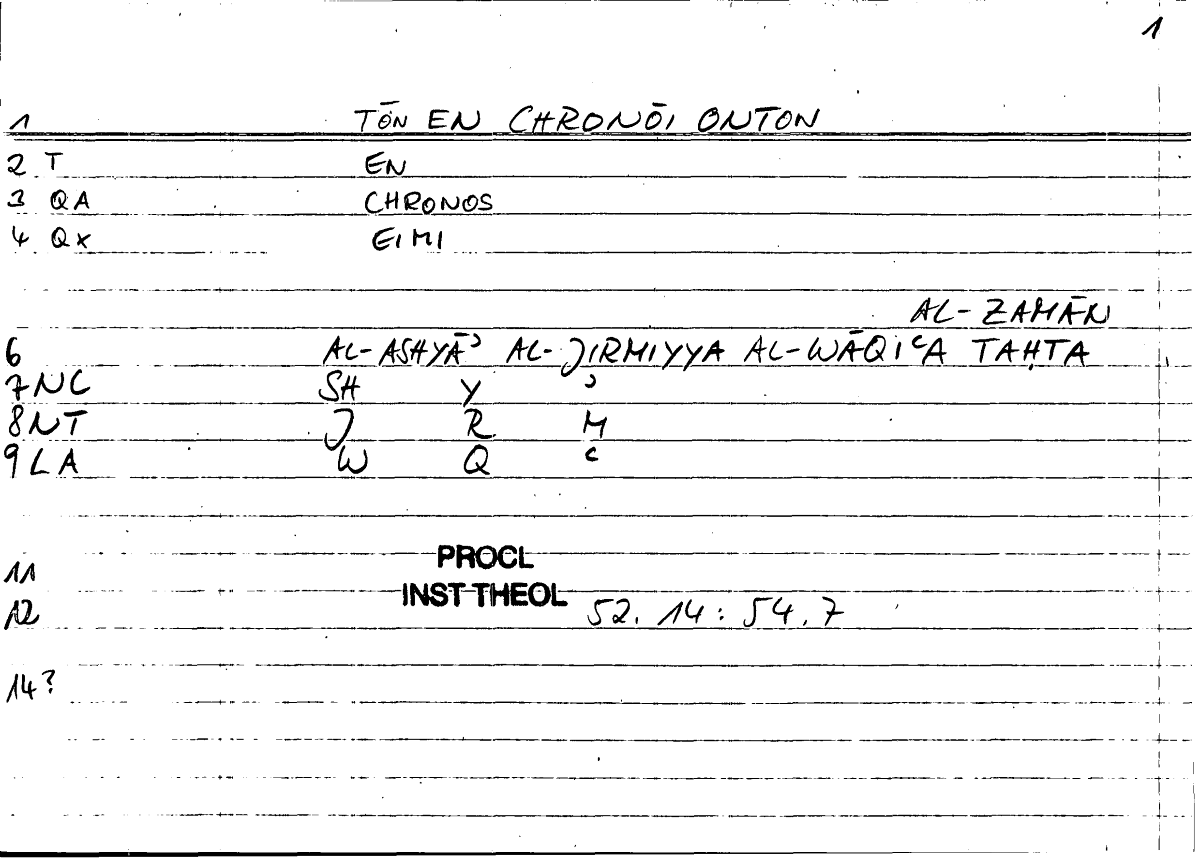 1
1 TŌN EN CHRONŌI ONTON
2 T EN
3 QA CHRONOS
4 QX EIMI
AL-ZAMĀN
6 AL-ASHYĀʾ AL-JIRMIYYA AL-WĀQIʿA TAḤTA
7 NC SH Y ʾ
8 NT J R M
9 LA W Q ʿ
11 PROCL
12 INST THEOL 52. 14 : 54. 7
14?